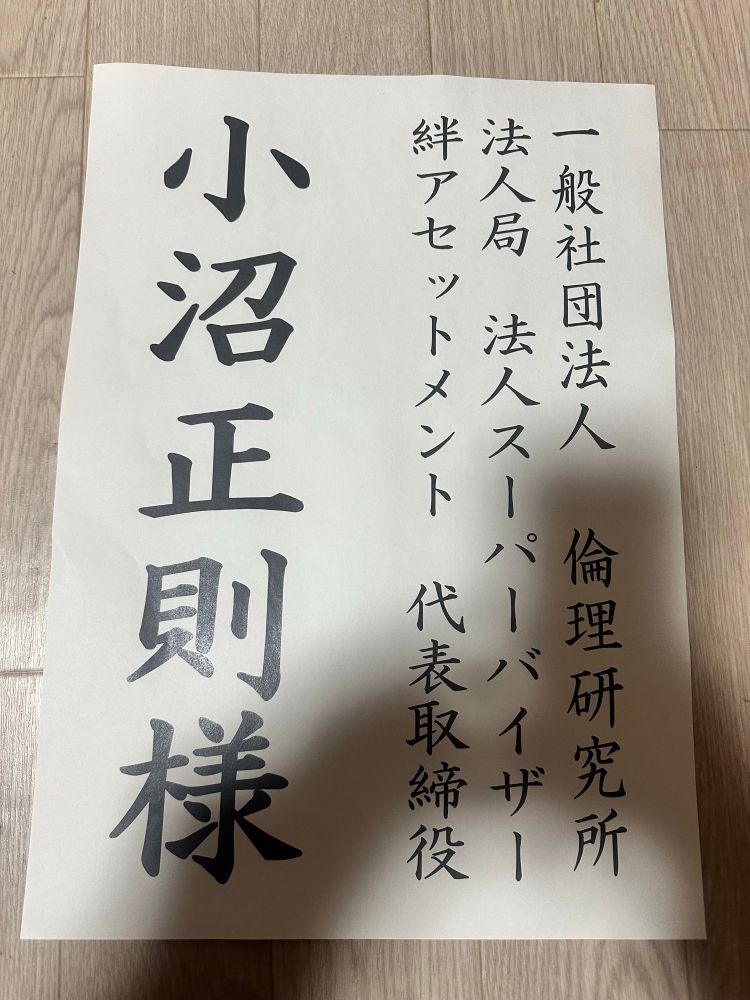 一般社団法人　倫理研究所
法人局　法人スーパーバイザー
絆アセットメント　代表取締役
小沼正則様